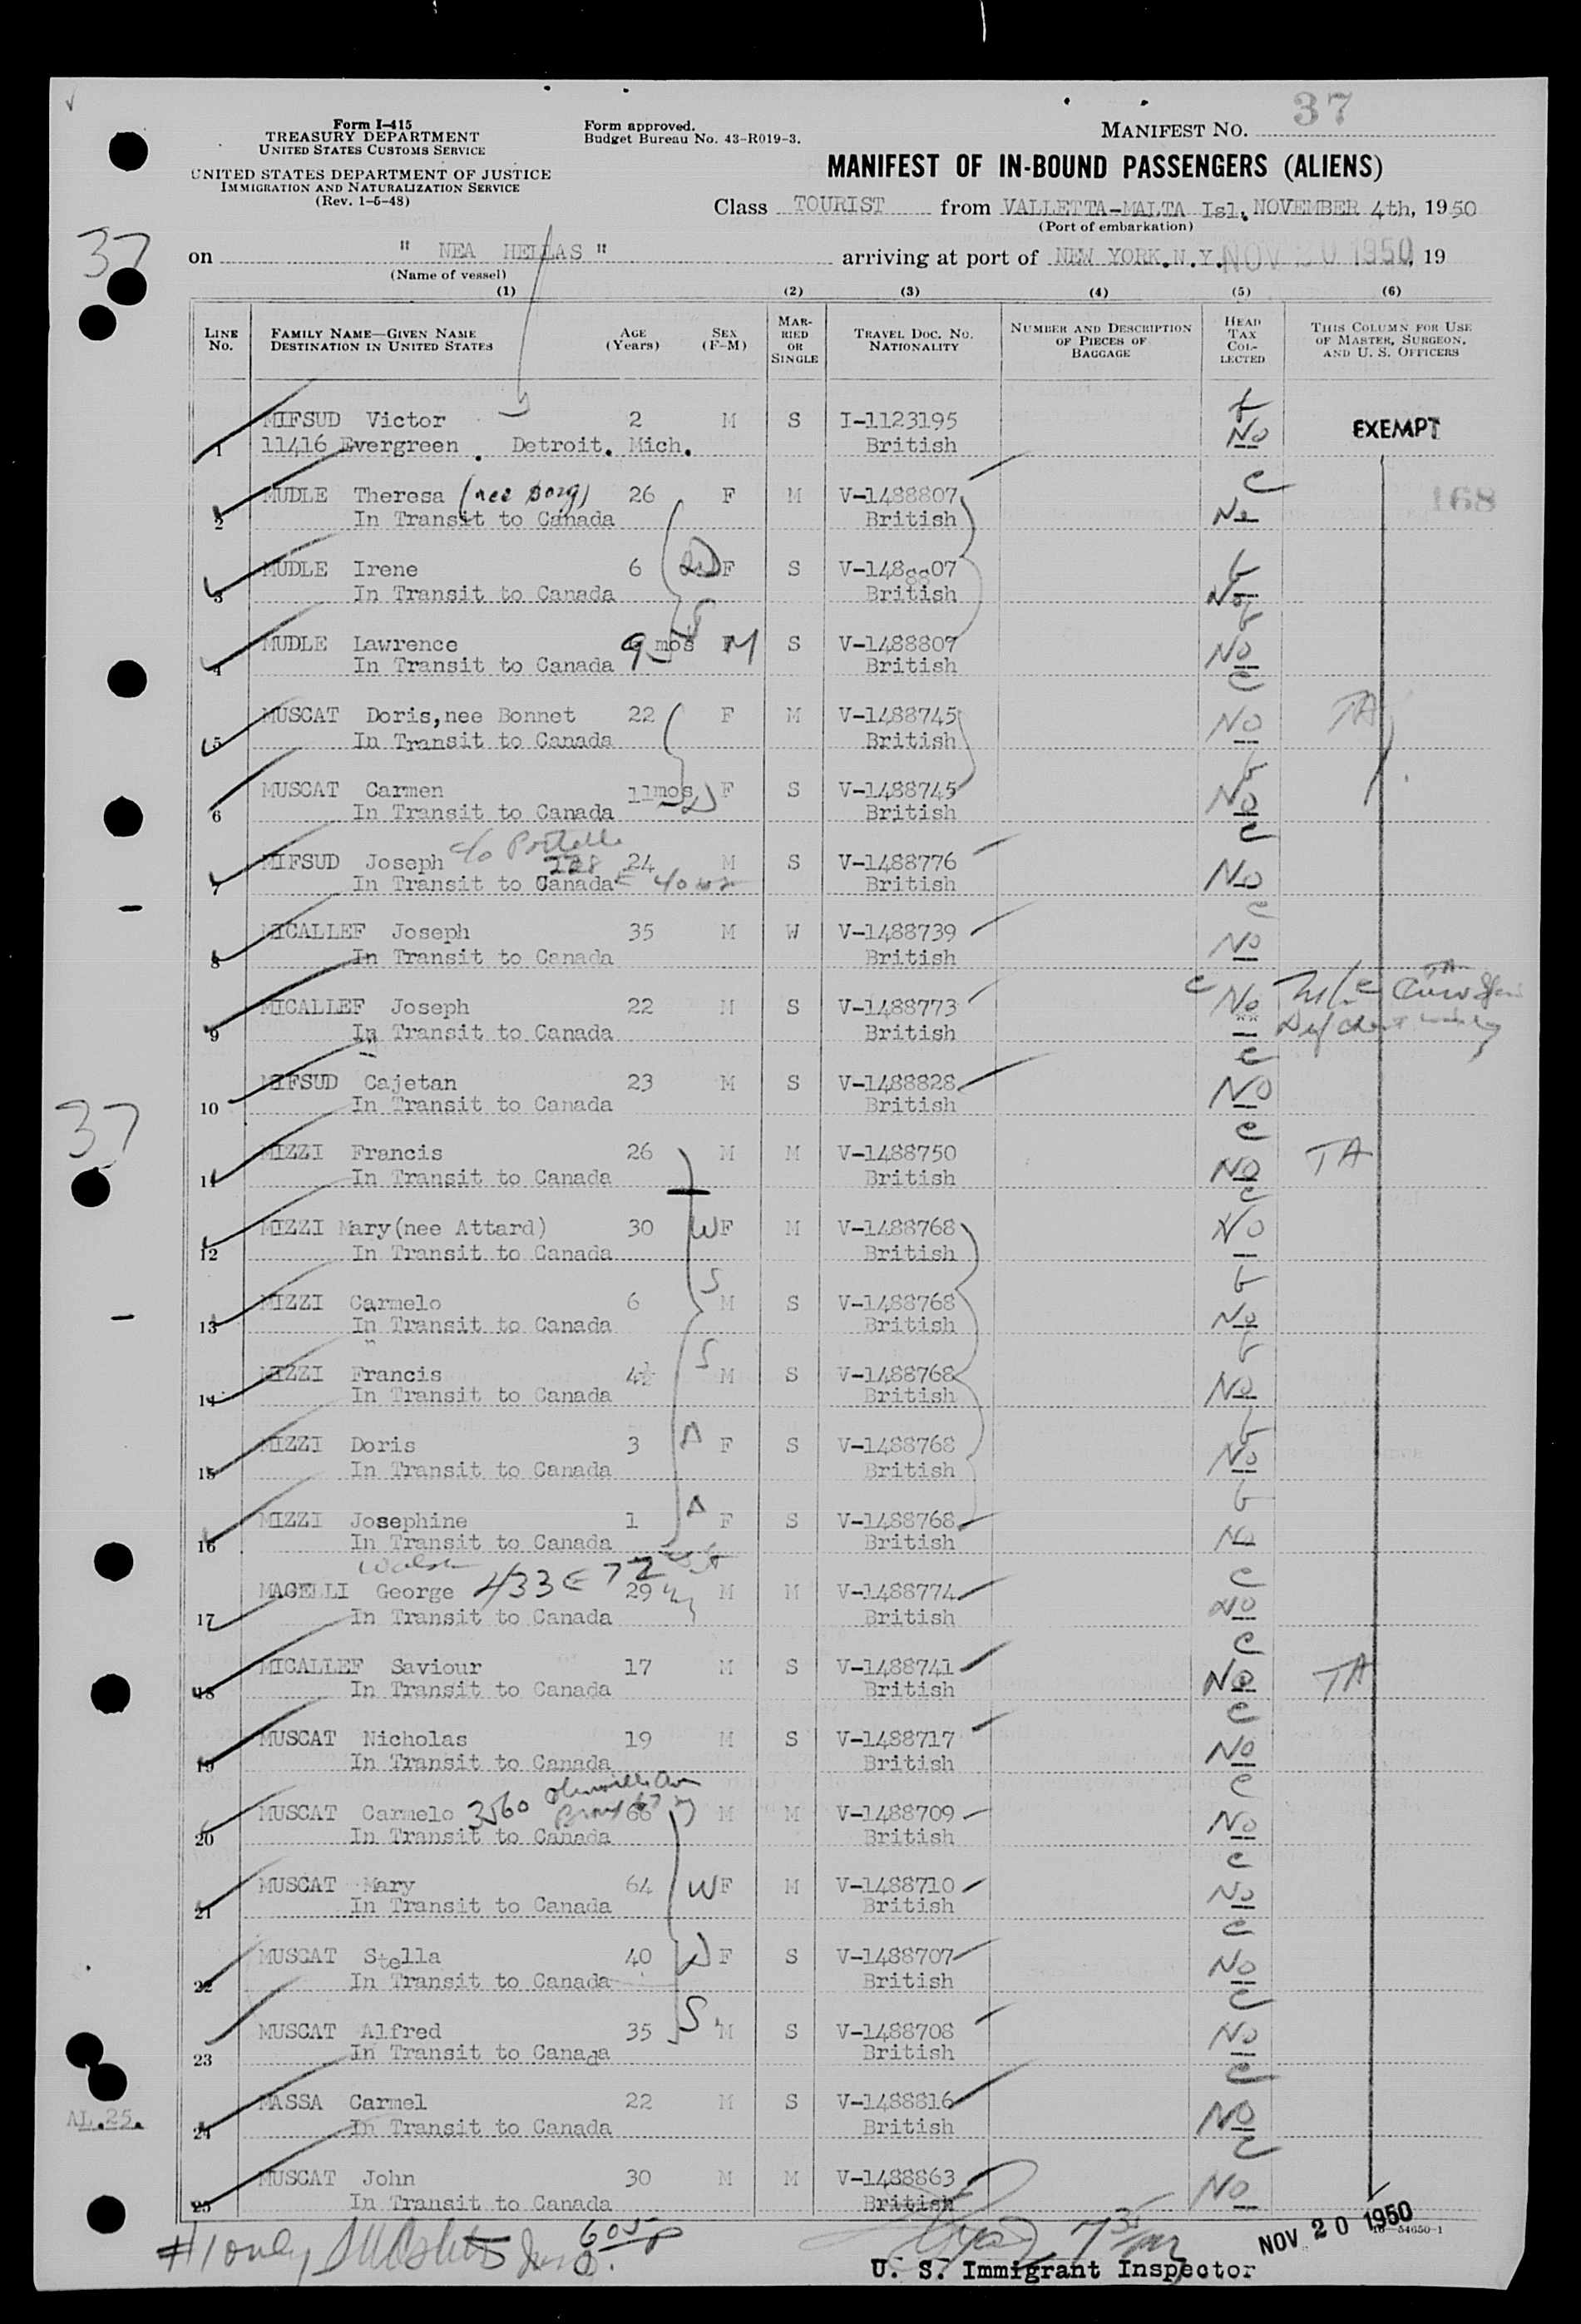 37
Form I-415
TREASURY DEPARTMENT
UNITED STATES CUSTOMS SERVICE
UNITED STATES DEPARTMENT OF JUSTICE
IMMIGRATION AND NATURALIZATION SERVICE
(Rev. 1-5-48)
Form approved.
Budget Bureau No. 43-R019-3.
MANIFEST NO. 37
MANIFEST OF IN-BOUND PASSENGERS (ALIENS)
Class TOURIST from VALLETTA-MALTA Isl, NOVEMBER 4th, 1950
(Port of embarkation)
on " NEA HELLAS " arriving at port of NEW YORK.N.Y. NOV 20 1950, 19
(Name of vessel)
(1) (2) (3) (4) (5) (6)
LINE NO. FAMILY NAME—GIVEN NAME DESTINATION IN UNITED STATES AGE (Years) SEX (F-M) MARRIED OR SINGLE TRAVEL DOC. NO. NATIONALITY NUMBER AND DESCRIPTION OF PIECES OF BAGGAGE HEAD TAX COLLECTED THIS COLUMN FOR USE OF MASTER, SURGEON, AND U. S. OFFICERS
MIFSUD Victor 2 M S I-1123195 EXEMPT
1 11416 Evergreen . Detroit. Mich. British No
MUDLE Theresa (nee Borg) 26 F M V-1488807 c 168
2 In Transit to Canada British No
MUDLE Irene 6 D F S V-1488807
3 In Transit to Canada British No
MUDLE Lawrence 9 mos M S V-1488807
4 In Transit to Canada 9 British No
MUSCAT Doris,nee Bonnet 22 F M V-1488745 c TA
5 In Transit to Canada British No
MUSCAT Carmen 11mos D F S V-1488745
6 In Transit to Canada British No
MIFSUD Joseph c/o 228 24 M S V-1488776 c
7 In Transit to Canada E 40 British No
MICALLEF Joseph 35 M W V-1488739 c
8 In Transit to Canada British No
MICALLEF Joseph 22 M S V-1488773 c No TA
9 In Transit to Canada British
MIFSUD Cajetan 23 M S V-1488828 c
10 In Transit to Canada British NO
MIZZI Francis 26 M M V-1488750 c TA
11 In Transit to Canada British NO
MIZZI Mary(nee Attard) 30 W F M V-1488768 c
12 In Transit to Canada British No
MIZZI Carmelo 6 S M S V-1488768
13 In Transit to Canada British No
MIZZI Francis 4½ S M S V-1488768
14 In Transit to Canada British No
MIZZI Doris 3 D F S V-1488768
15 In Transit to Canada British No
MIZZI Josephine 1 D F S V-1488768
16 In Transit to Canada British No
MAGELLI George 433 E 72 St 29 M M V-1488774 c
17 In Transit to Canada British NO
MICALLEF Saviour 17 M S V-1488741 c TA
18 In Transit to Canada British No
MUSCAT Nicholas 19 M S V-1488717 c
19 In Transit to Canada British No
MUSCAT Carmelo 3560 66 M M V-1488709 c
20 In Transit to Canada British No
MUSCAT Mary 64 W F M V-1488710 c
21 In Transit to Canada British No
MUSCAT Stella 40 D F S V-1488707 c
22 In Transit to Canada British No
MUSCAT Alfred 35 S M S V-1488708 c
23 In Transit to Canada British No
MASSA Carmel 22 M S V-1488816 c
24 In Transit to Canada British No
MUSCAT John 30 M M V-1488863 c
25 In Transit to Canada British No
37
AL.25.
#1 only 605 P
7 35
NOV 20 1950
16—54650-1
U. S. Immigrant Inspector